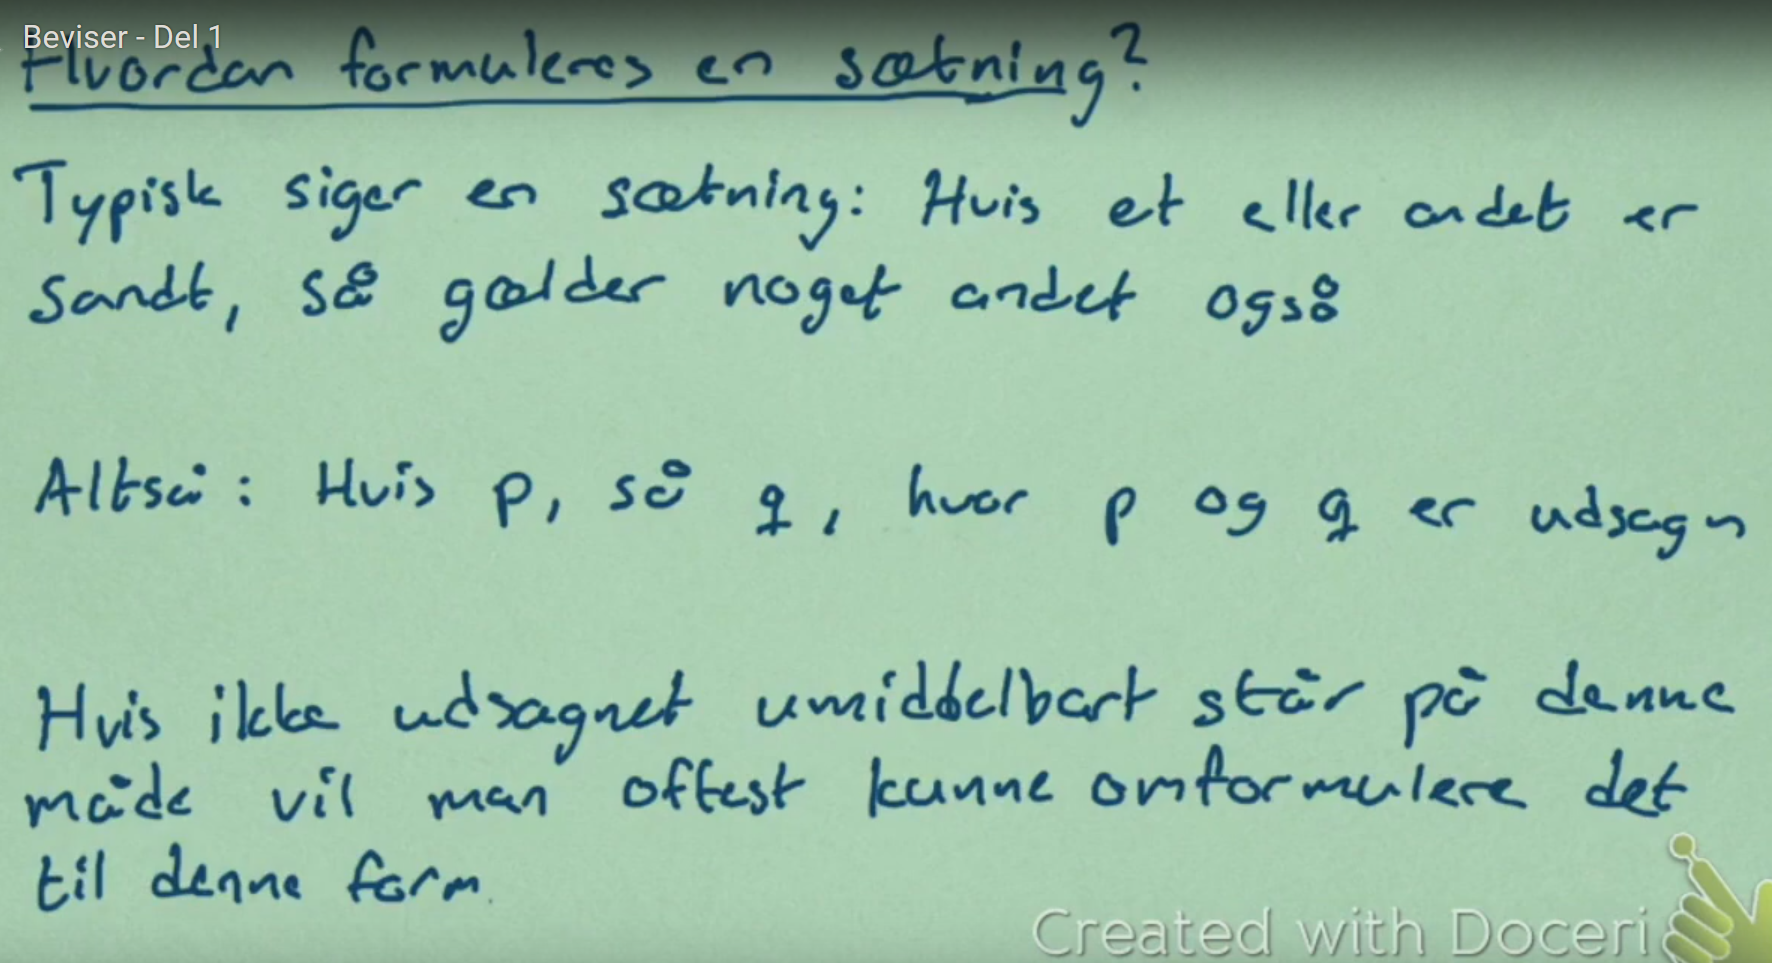 Beviser - Del 1
Hvordan formuleres en sætning?
Typisk siger en sætning: Hvis et eller andet er
sandt, så gælder noget andet også
Altså: Hvis p, så q, hvor p og q er udsagn
Hvis ikke udsagnet umiddelbart står på denne
måde vil man oftest kunne omformulere det
til denne form.
Created with Doceri